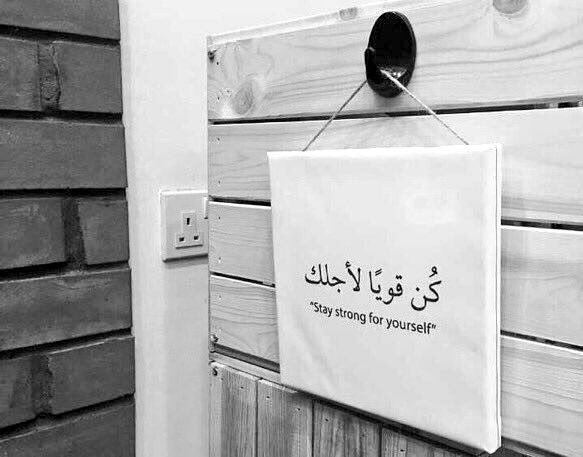 كُن قويًا لأجلك
"Stay strong for yourself"